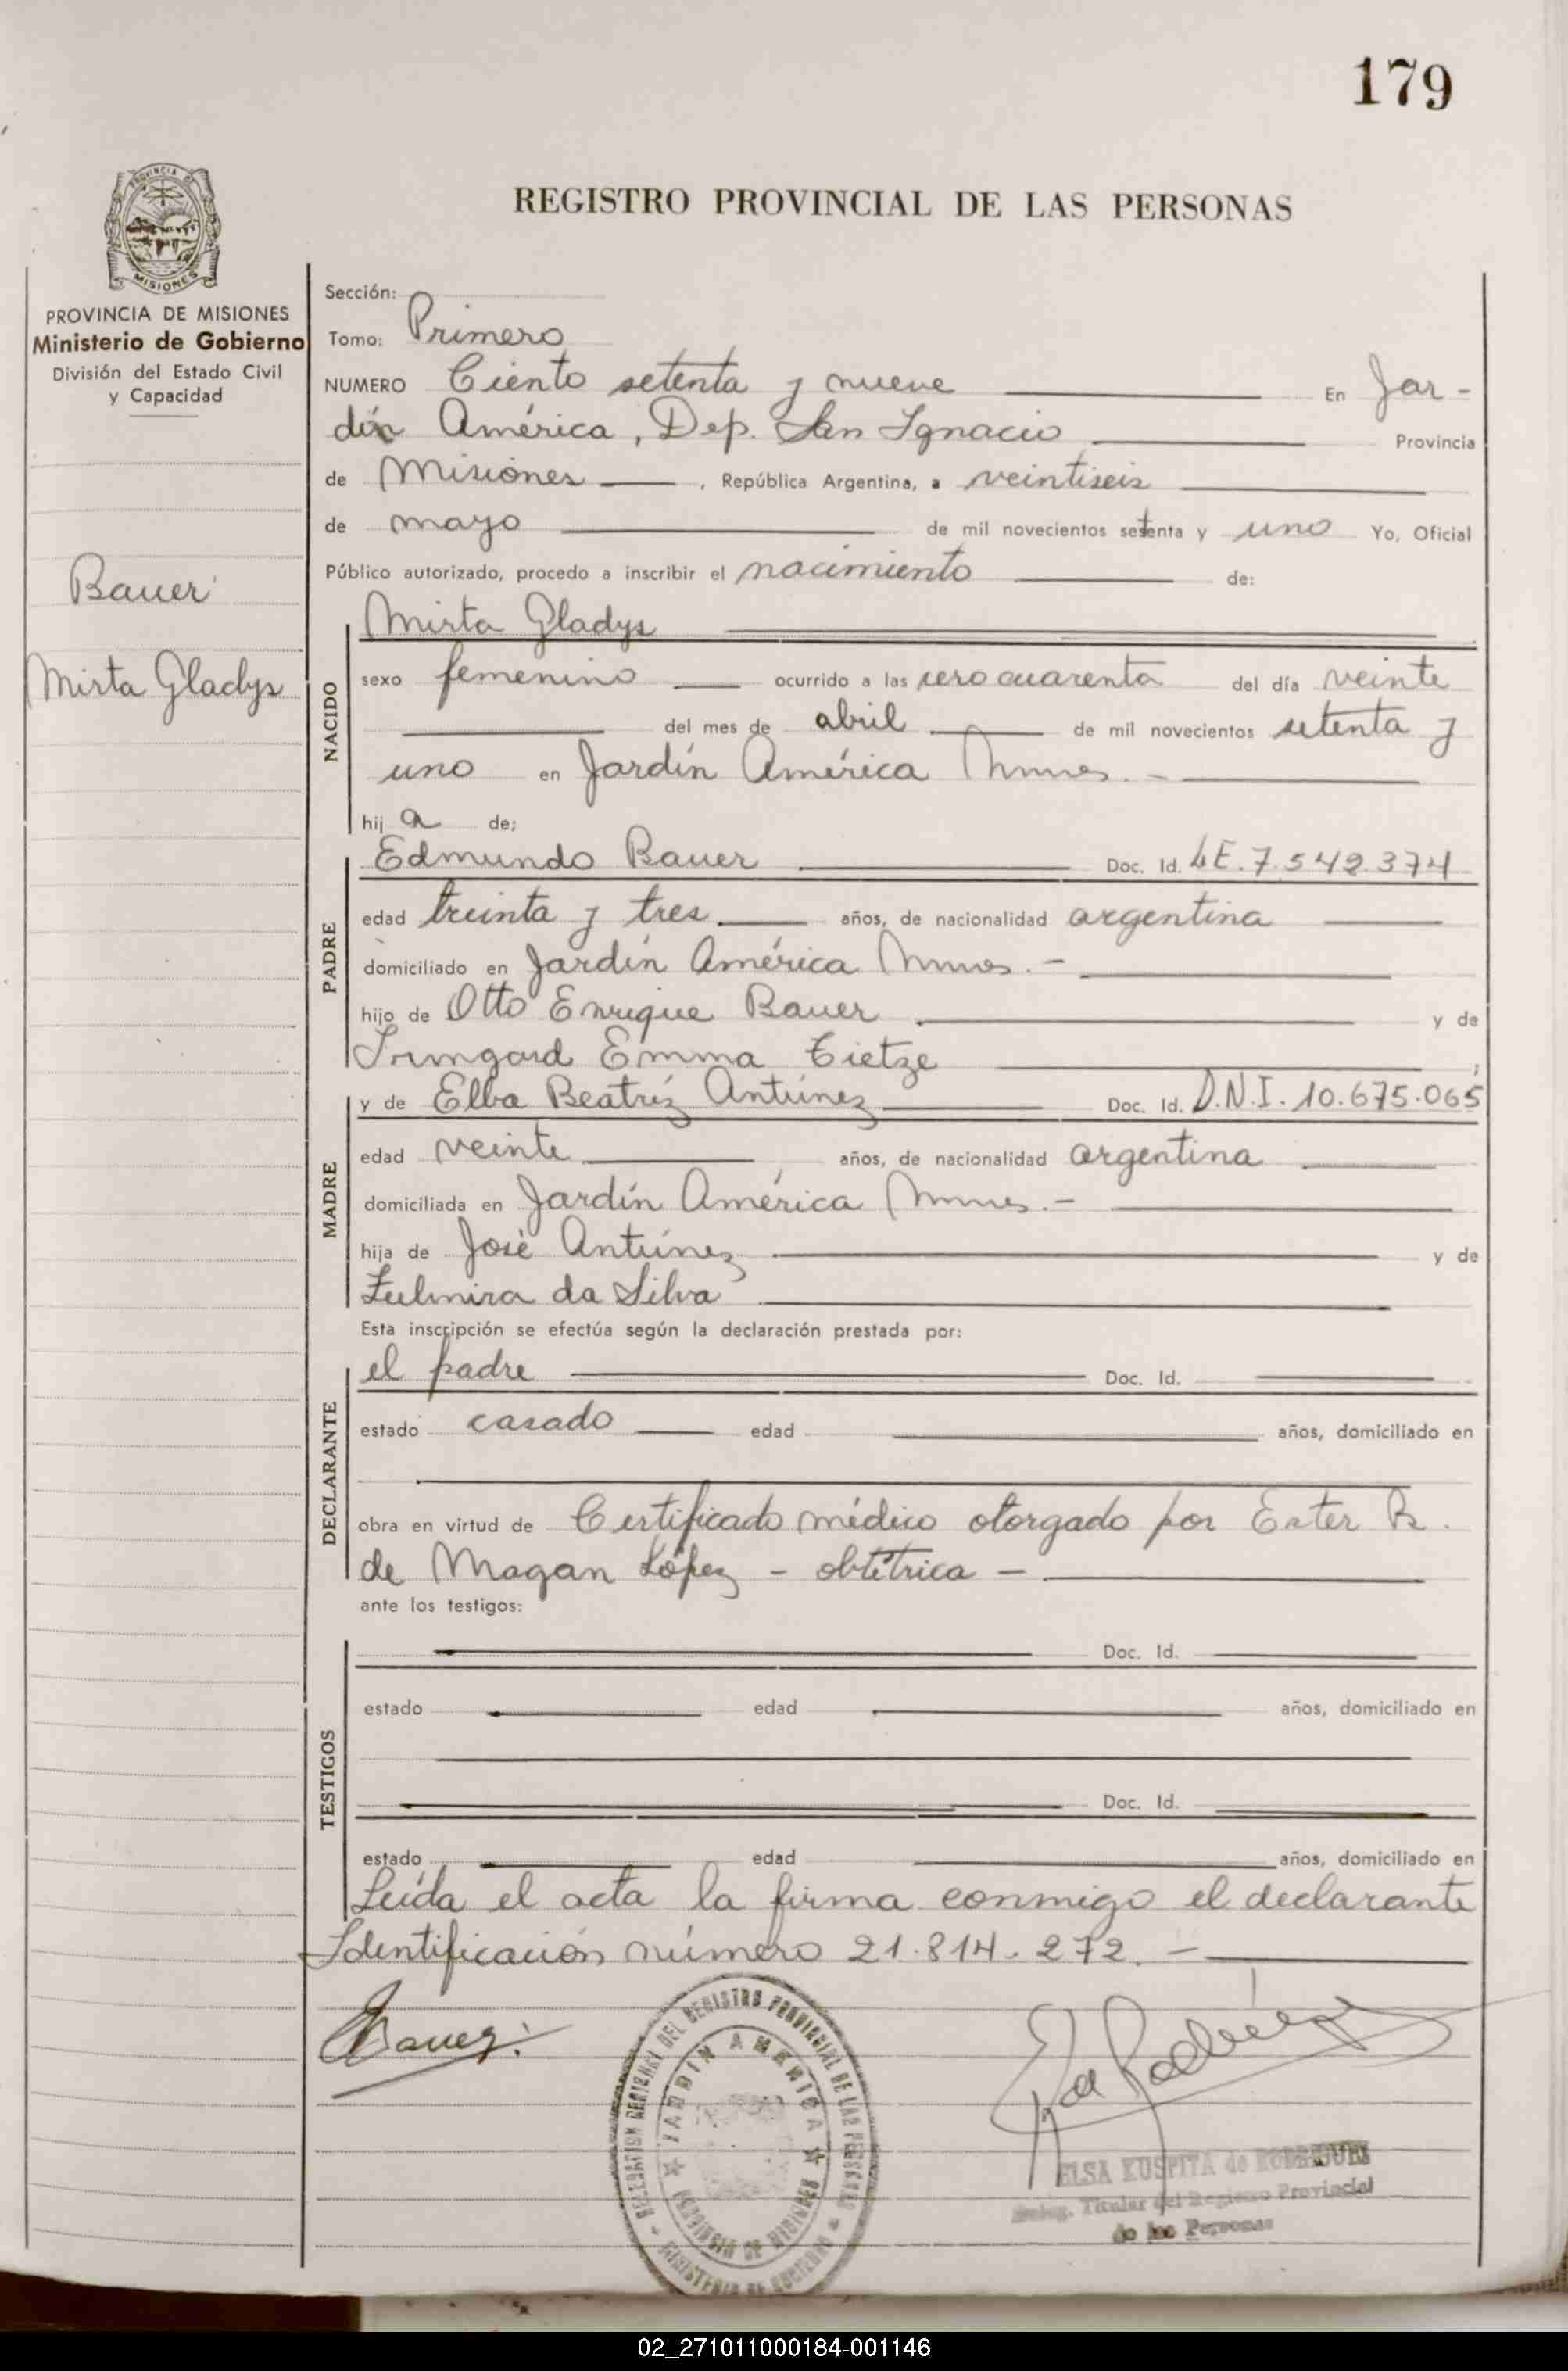 179
PROVINCIA DE
MISIONES
REGISTRO PROVINCIAL DE LAS PERSONAS
PROVINCIA DE MISIONES
Ministerio de Gobierno
División del Estado Civil
y Capacidad
Bauer
Mirta Gladys
Sección:
Tomo: Primero
NUMERO Ciento setenta y nueve En Jar-
dín América, Dep. San Ignacio Provincia
de Misiones, República Argentina, a veintiseis
de mayo de mil novecientos setenta y uno Yo, Oficial
Público autorizado, procedo a inscribir el nacimiento de:
NACIDO
Mirta Gladys
sexo femenino ocurrido a las cero cuarenta del día veinte
del mes de abril de mil novecientos setenta y
uno en Jardín América Mnes.-
hija de:
PADRE
Edmundo Bauer Doc. Id. LE.7.542.374
edad treinta y tres años, de nacionalidad argentina
domiciliado en Jardín América Mnes.-
hijo de Otto Enrique Bauer y de
Irmgard Emma Tietze;
MADRE
y de Elba Beatríz Antúnez Doc. Id. D.N.I. 10.675.065
edad veinte años, de nacionalidad argentina
domiciliada en Jardín América Mnes.-
hija de José Antúnez y de
Zulmira da Silva
Esta inscripción se efectúa según la declaración prestada por:
DECLARANTE
el padre Doc. Id.
estado casado edad años, domiciliado en
obra en virtud de Certificado médico otorgado por Ester R.
de Magan López - obtétrica -
ante los testigos:
TESTIGOS
Doc. Id.
estado edad años, domiciliado en
Doc. Id.
estado edad años, domiciliado en
Leída el acta la firma conmigo el declarante
Identificación número 21.814.272.-
EBauer.
DELEGACION REGIONAL DEL REGISTRO PROVINCIAL DE LAS PERSONAS
MINISTERIO DE GOBIERNO
JARDIN AMERICA
PROVINCIA DE MISIONES
ELSA KUSPITA de RODRIGUES
Deleg. Titular del Registro Provincial
de las Personas
02_271011000184-001146